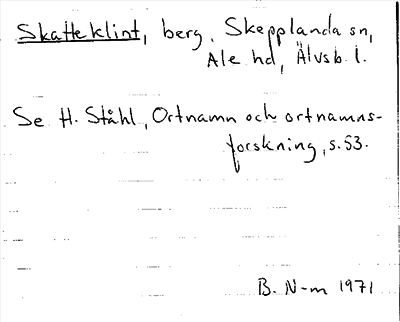 Skatteklint, berg, Skepplanda sn,
Ale hd, Älvsb. l.
Se H. Ståhl, Ortnamn och ortnamns-
forskning, s. 53.
B. N-m 1971